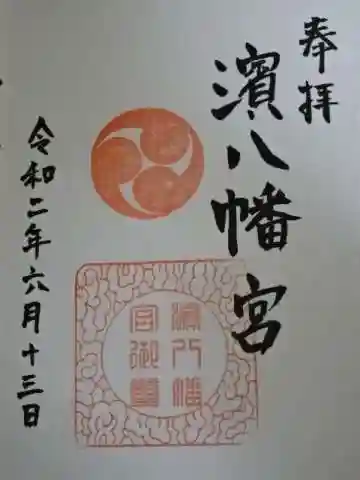 奉拝
濱八幡宮
令和二年六月十三日
濱八幡
宮御璽